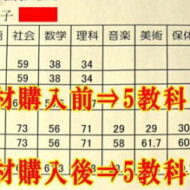 子
社会 数学 理科 音楽 美術 保体
59 38 34
59 38 34
材購入前⇒5教科
73 56 71 29 29 30
73 56 71 58 61.7 60
材購入後⇒5教科